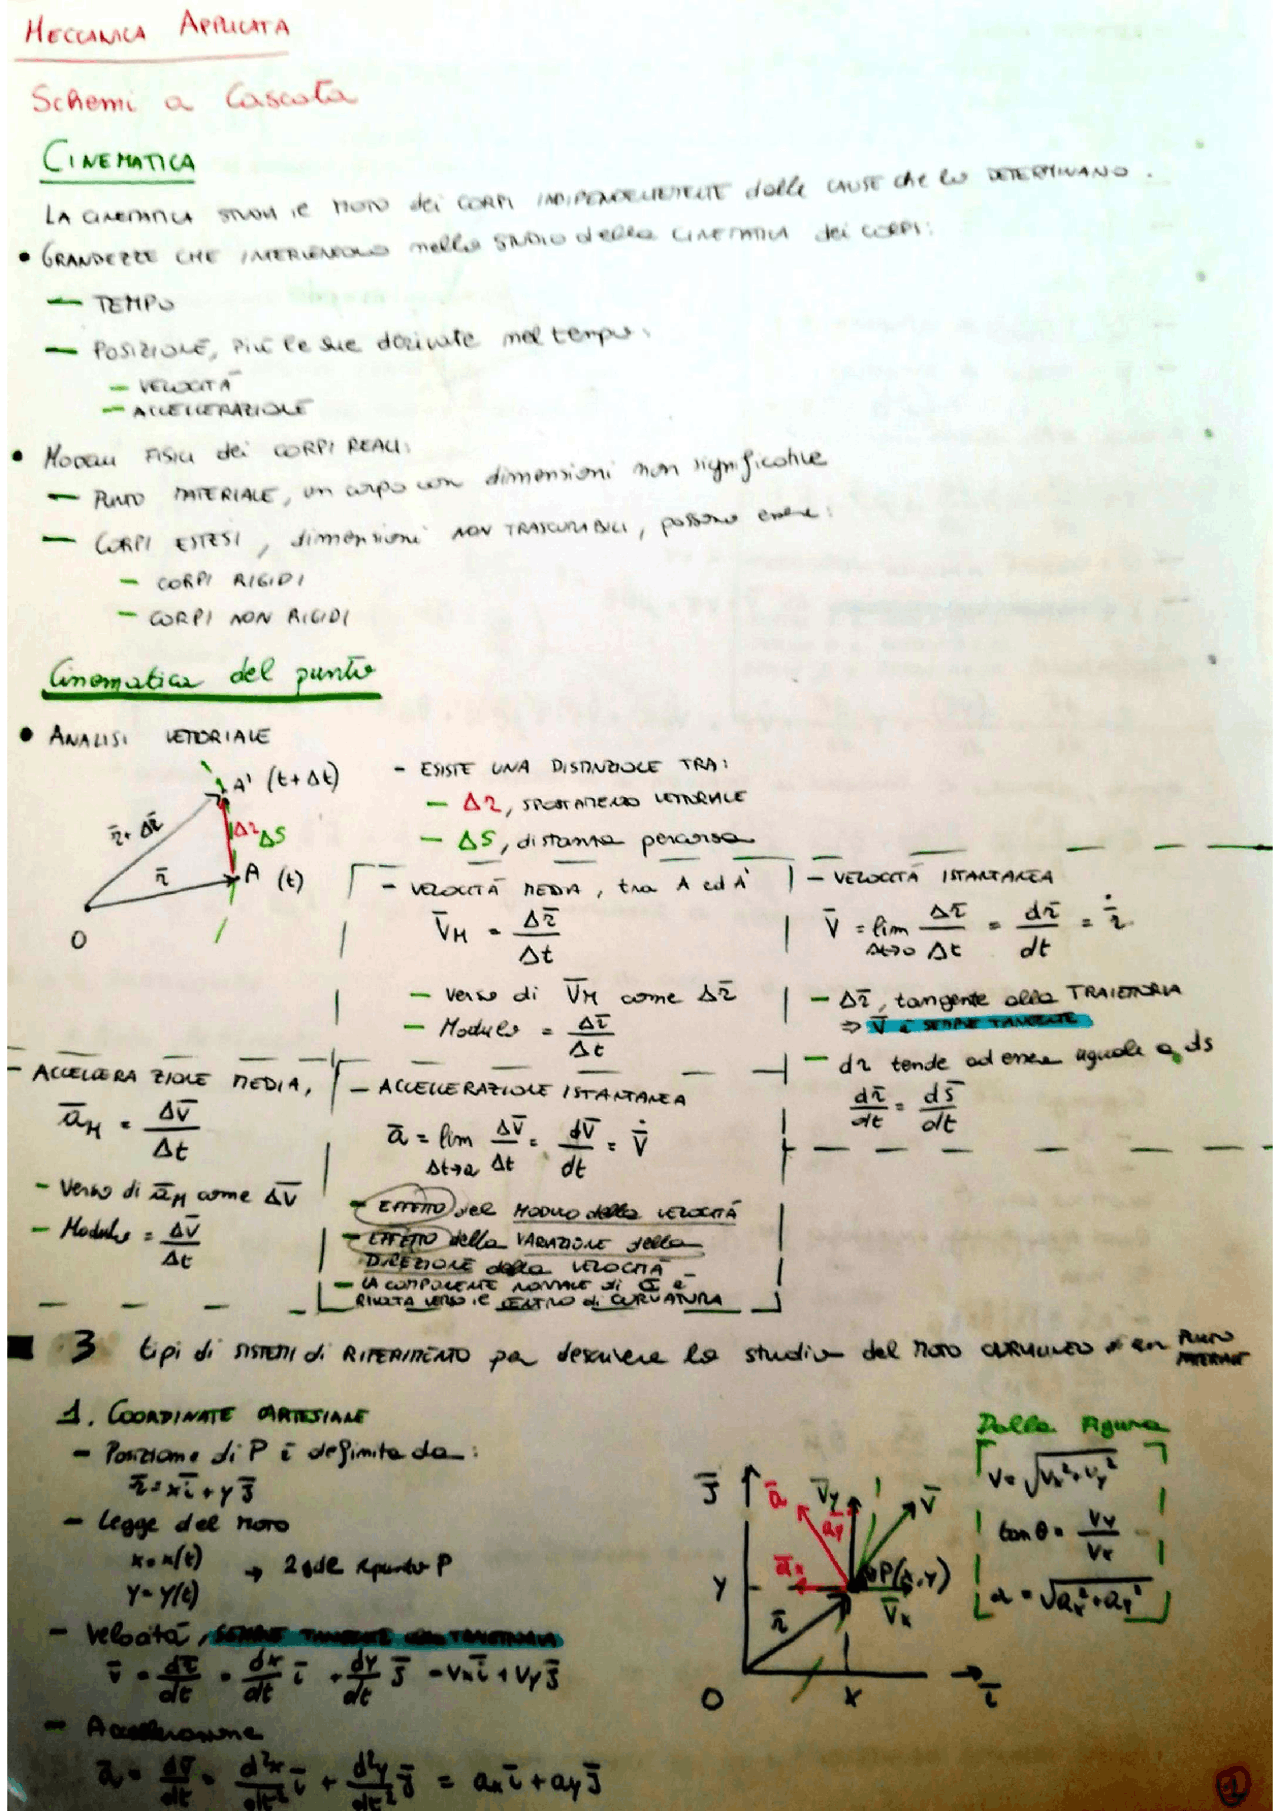 MECCANICA APPLICATA
Schemi a Cascata
CINEMATICA
LA CINEMATICA STUDIA IL MOTO dei CORPI INDIPENDENTEMENTE dalle CAUSE che lo DETERMINANO.
• GRANDEZZE CHE INTERVENGONO nello STUDIO della CINEMATICA dei CORPI:
— TEMPO
— POSIZIONE, più le sue derivate nel tempo:
— VELOCITÀ
— ACCELLERAZIONE
• MODELLI FISICI dei CORPI REALI:
— PUNTO MATERIALE, un corpo con dimensioni non significative
— CORPI ESTESI, dimensioni NON TRASCURABILI, possono essere:
— CORPI RIGIDI
— CORPI NON RIGIDI
Cinematica del punto
• ANALISI VETTORIALE
A' (t+Δt)
r̄+Δr̄
Δr ΔS
r̄
A (t)
O
- ESISTE UNA DISTINZIONE TRA:
— Δr, SPOSTAMENTO VETTORIALE
— ΔS, distanza percorsa
- VELOCITÀ MEDIA, tra A ed A'
V̄M = Δr̄/Δt
— Verso di V̄M come Δr̄
— Modulo = Δr̄/Δt
- VELOCITÀ ISTANTANEA
V̄ = lim Δt→0 Δr̄/Δt = dr̄/dt = ṙ̄
— Δr̄, tangente alla TRAIETTORIA
⇒ V̄ è SEMPRE TANGENTE
— dr tende ad essere uguale a ds
dr̄/dt = ds̄/dt
- ACCELLERAZIONE MEDIA,
āM = ΔV̄/Δt
- Verso di āM come ΔV̄
- Modulo = ΔV̄/Δt
- ACCELLERAZIONE ISTANTANEA
ā = lim Δt→0 ΔV̄/Δt = dV̄/dt = V̄̇
- EFFETTO del MODULO della VELOCITÀ
- EFFETTO della VARIAZIONE della
DIREZIONE della VELOCITÀ
- LA COMPONENTE NORMALE di ā è
RIVOLTA VERSO il CENTRO di CURVATURA
3 tipi di SISTEMI di RIFERIMENTO per descrivere lo studio del MOTO CURVILINEO un PUNTO MATERIALE
1. COORDINATE CARTESIANE
- Posizione di P è definita da:
r̄ = xī + yj̄
- Legge del MOTO
x = x(t)
y = y(t)
→ 2 gdl punto P
- Velocità, SEMPRE TANGENTE alla TRAIETTORIA
v̄ = dr̄/dt = dx/dt ī + dy/dt j̄ = Vxī + Vyj̄
- Accellerazione
ā = dv̄/dt = d²x/dt² ī + d²y/dt² j̄ = axī + ayj̄
j̄
ā
V̄y
ay
V̄
āx
P(x,y)
V̄x
Y
r̄
O
X
ī
Dalla Figura
V = √(Vx²+Vy²)
tan θ = Vy/Vx
a = √(ax²+ay²)
1